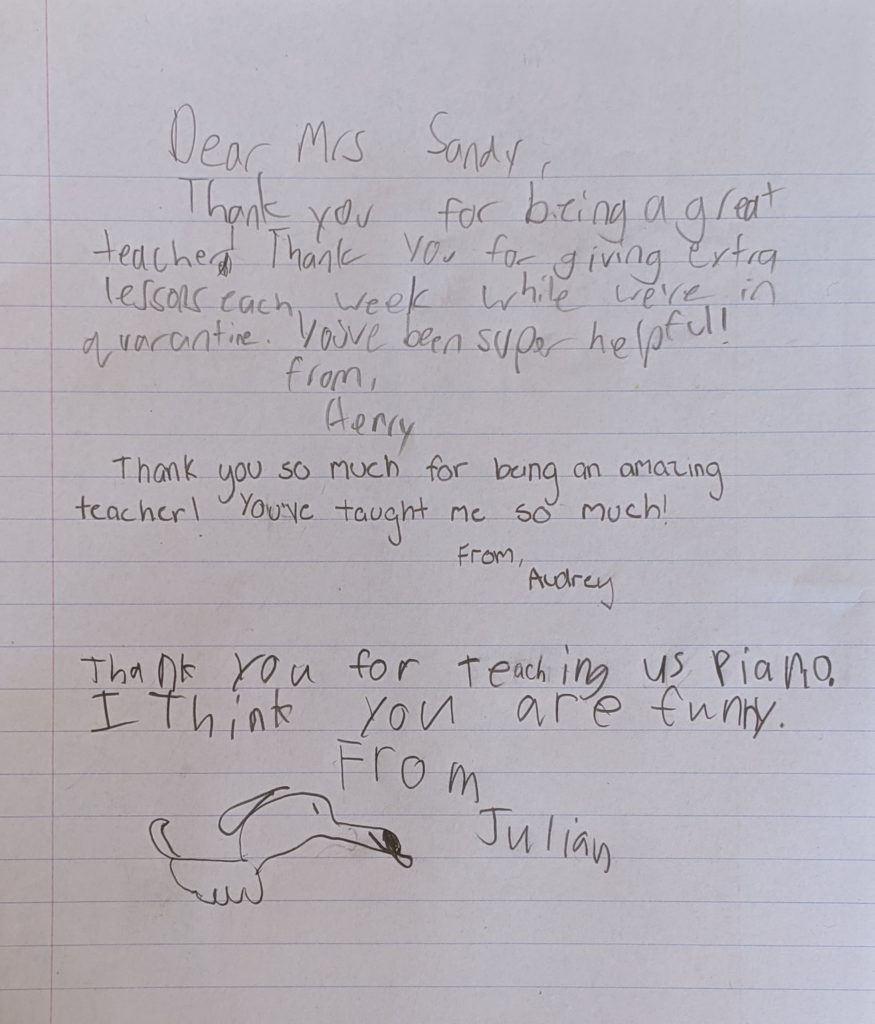 Dear Mrs Sandy,
Thank you for being a great
teacher! Thank you for giving extra
lessons each week while we're in
quarantine. You've been super helpful!
from,
Henry
Thank you so much for being an amazing
teacher! You've taught me so much!
From,
Audrey
Thank you for teaching us piano.
I Think you are funny.
From
Julian